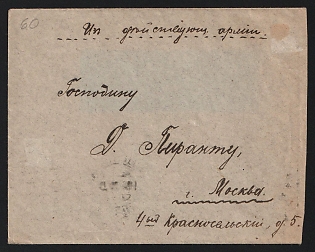 60
Изъ действующ. армiи.
Господину
Д. Пиранту,
г. Москва.
4ый Красносельскiй, д. 5.